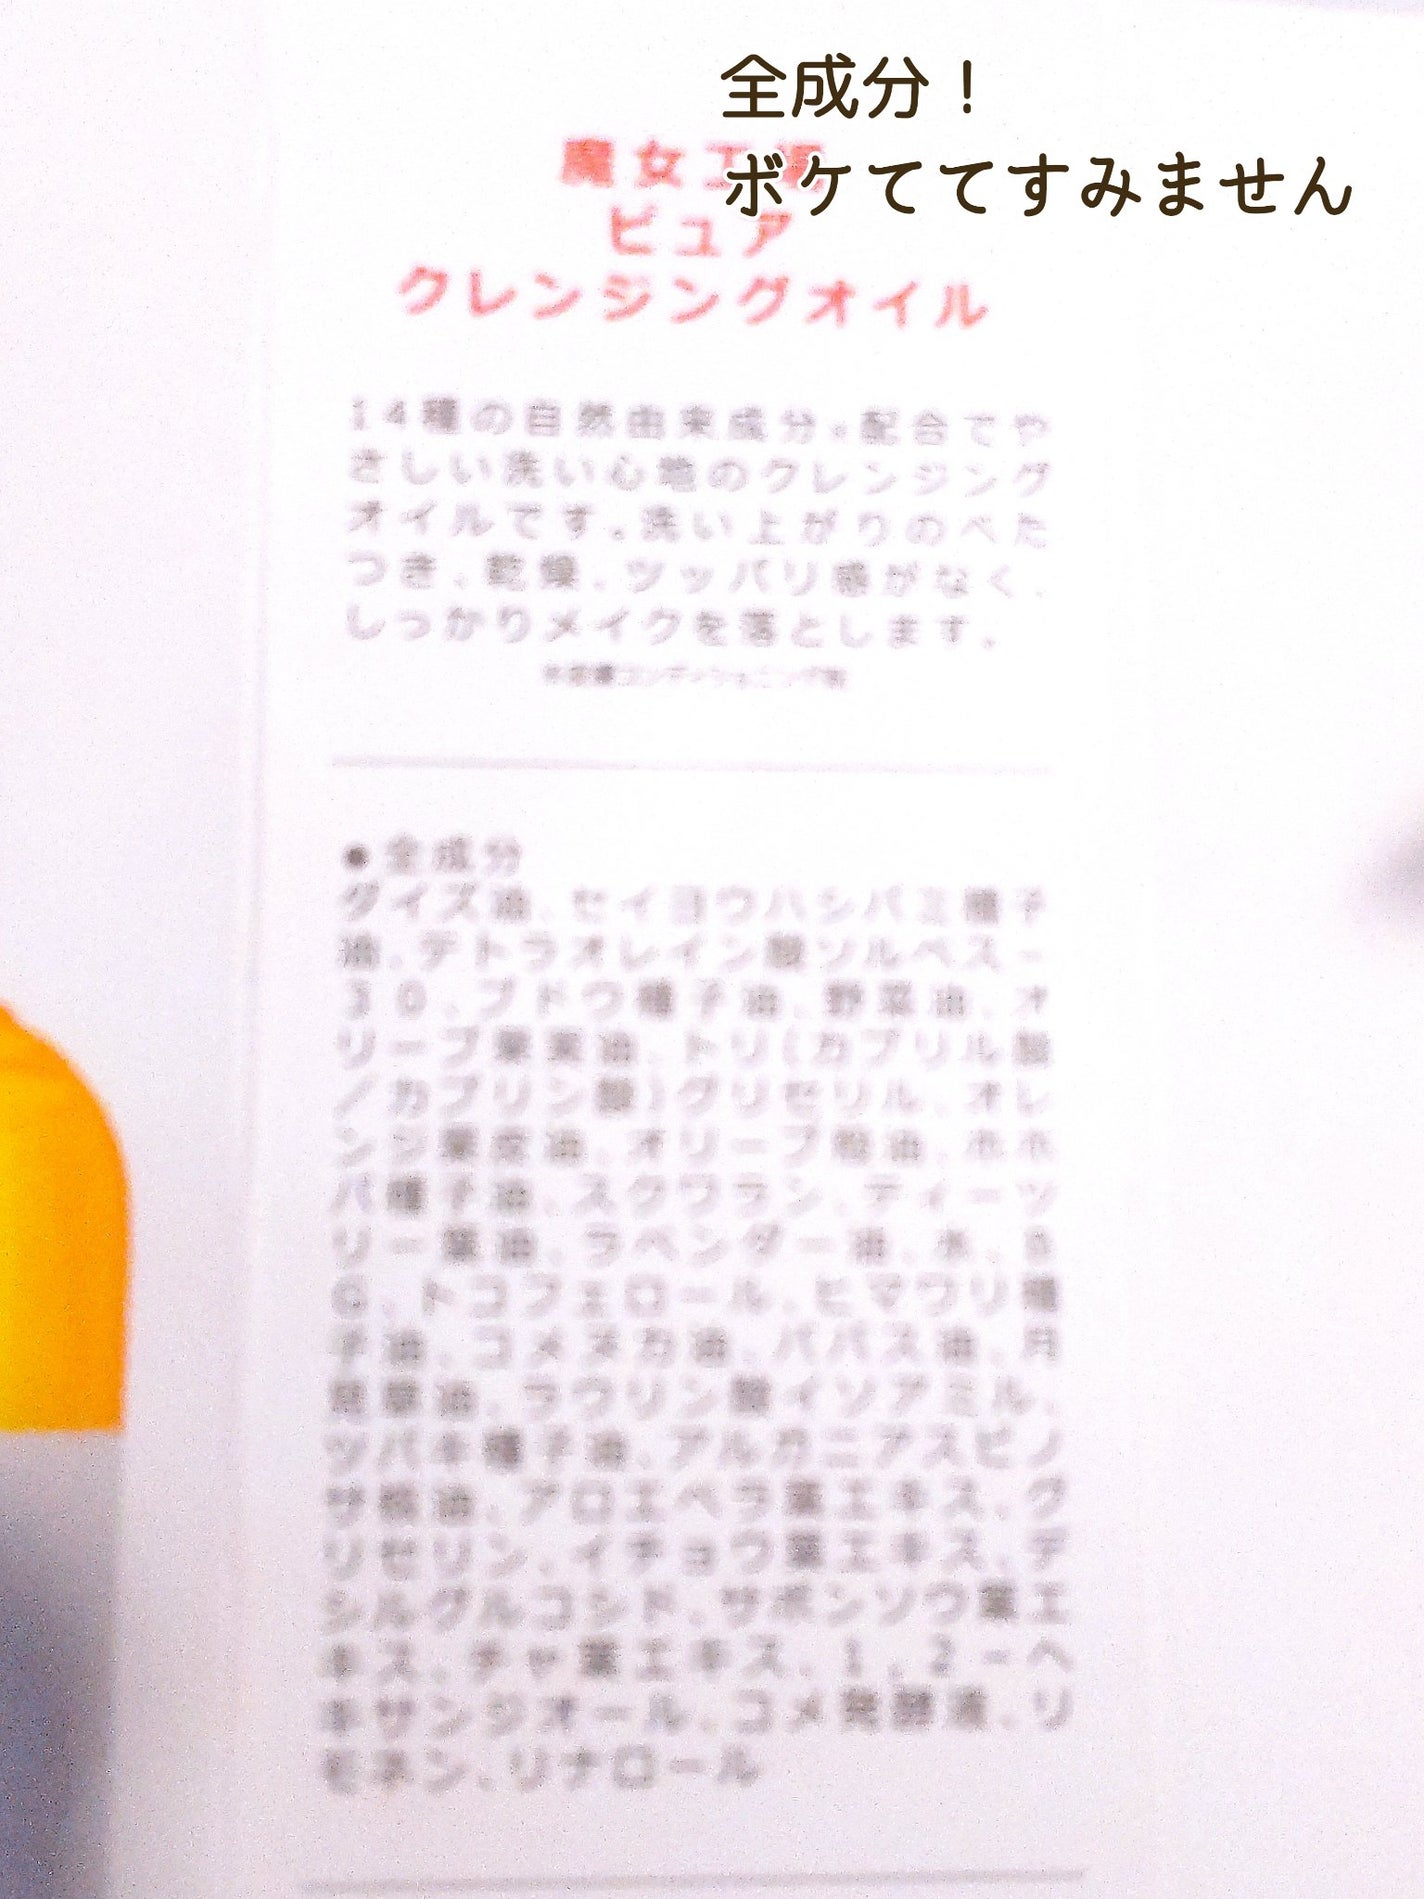 全成分！
ボケててすみません
魔女工場
ピュア
クレンジングオイル
14種の自然由来成分※配合でや
さしい洗い心地のクレンジング
オイルです。洗い上がりのべた
つき、乾燥、ツッパリ感がなく、
しっかりメイクを落とします。
コンディショニング剤
●全成分
ダイズ油、セイヨウハシバミ種子
油、テトラオレイン酸ソルベス－
30、ブドウ種子油、野菜油、オ
リーブ果実油、トリ(カプリル酸
／カプリン酸)グリセリル、オレ
ンジ果皮油、オリーブ油、ホホ
バ種子油、スクワラン、ティーツ
リー葉油、ラベンダー油、水、B
G、トコフェロール、ヒマワリ種
子油、コメヌカ油、ババス油、月
見草油、ラウリン酸イソアミル、
ツバキ種子油、アルガニアスピノ
サ核油、アロエベラ葉エキス、グ
リセリン、イチョウ葉エキス、デ
シルグルコシド、サボンソウ葉エ
キス、チャ葉エキス、1,2－ヘ
キサンジオール、コメ発酵液、リ
モネン、リナロール